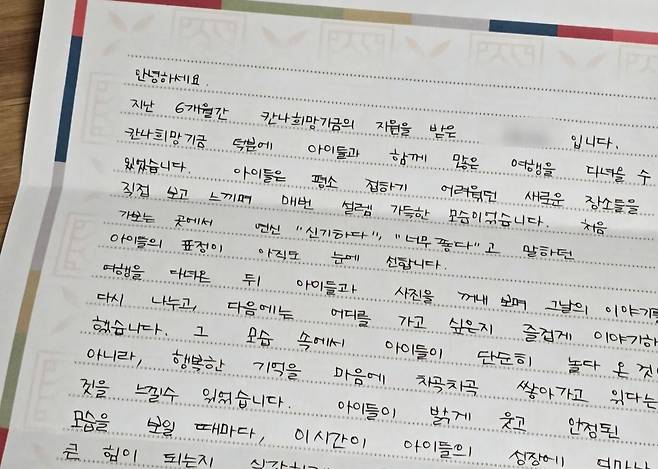 안녕하세요.
지난 6개월간 칸나희망기금의 지원을 받은 입니다.
칸나희망기금 덕분에 아이들과 함께 많은 여행을 다녀올 수
있었습니다. 아이들은 평소 접하기 어려웠던 새로운 장소들을
직접 보고 느끼며 매번 설렘 가득한 모습이었습니다. 처음
가보는 곳에서 연신 "신기하다", "너무 좋다"고 말하던
아이들의 표정이 아직도 눈에 선합니다.
여행을 다녀온 뒤 아이들과 사진을 꺼내 보며 그날의 이야기를
다시 나누고, 다음에는 어디를 가고 싶은지 즐겁게 이야기하
했습니다. 그 모습 속에서 아이들이 단순히 놀다 온 것이
아니라, 행복한 기억을 마음에 차곡차곡 쌓아가고 있다는
것을 느낄수 있었습니다. 아이들이 밝게 웃고 안정된
모습을 보일 때마다, 이 시간이 아이들의 성장에 얼마나
큰 힘이 되는지